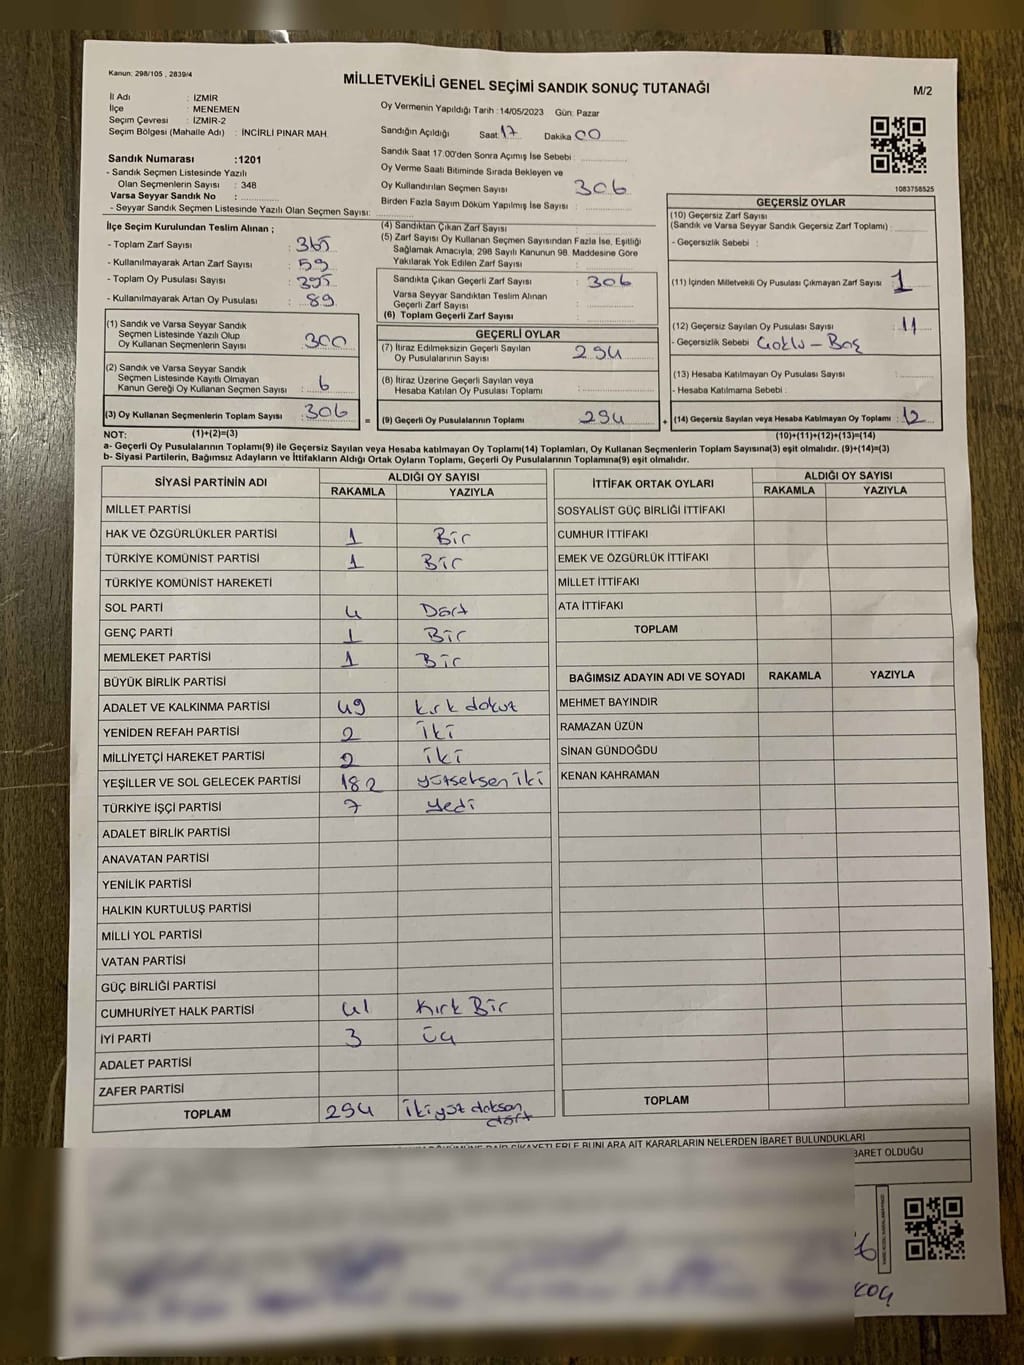 Kanun: 298/105 , 2839/4
MİLLETVEKİLİ GENEL SEÇİMİ SANDIK SONUÇ TUTANAĞI
M/2
İl Adı : İZMİR
İlçe : MENEMEN
Seçim Çevresi : İZMİR-2
Seçim Bölgesi (Mahalle Adı) : İNCİRLİ PINAR MAH.
Sandık Numarası :1201
- Sandık Seçmen Listesinde Yazılı
Olan Seçmenlerin Sayısı : 348
Varsa Seyyar Sandık No :
- Seyyar Sandık Seçmen Listesinde Yazılı Olan Seçmen Sayısı:
Oy Vermenin Yapıldığı Tarih :14/05/2023 Gün: Pazar
Sandığın Açıldığı Saat:17 Dakika 00
Sandık Saat 17:00'den Sonra Açımış İse Sebebi :
Oy Verme Saati Bitiminde Sırada Bekleyen ve
Oy Kullandırılan Seçmen Sayısı 306
Birden Fazla Sayım Döküm Yapılmış İse Sayısı :
1083758525
İlçe Seçim Kurulundan Teslim Alınan ;
- Toplam Zarf Sayısı : 365
- Kullanılmayarak Artan Zarf Sayısı : 59
- Toplam Oy Pusulası Sayısı : 395
- Kullanılmayarak Artan Oy Pusulası : 89
(1) Sandık ve Varsa Seyyar Sandık
Seçmen Listesinde Yazılı Olup
Oy Kullanan Seçmenlerin Sayısı 300
(2) Sandık ve Varsa Seyyar Sandık
Seçmen Listesinde Kayıtlı Olmayan
Kanun Gereği Oy Kullanan Seçmen Sayısı : 6
(3) Oy Kullanan Seçmenlerin Toplam Sayısı : 306
(4) Sandıktan Çıkan Zarf Sayısı :
(5) Zarf Sayısı Oy Kullanan Seçmen Sayısından Fazla İse, Eşitliği
Sağlamak Amacıyla, 298 Sayılı Kanunun 98. Maddesine Göre
Yakılarak Yok Edilen Zarf Sayısı :
Sandıkta Çıkan Geçerli Zarf Sayısı : 306
Varsa Seyyar Sandıktan Teslim Alınan
Geçerli Zarf Sayısı :
(6) Toplam Geçerli Zarf Sayısı :
GEÇERLİ OYLAR
(7) İtiraz Edilmeksizin Geçerli Sayılan
Oy Pusulalarının Sayısı : 294
(8) İtiraz Üzerine Geçerli Sayılan veya
Hesaba Katılan Oy Pusulası Toplamı :
= (9) Geçerli Oy Pusulalarının Toplamı : 294
GEÇERSİZ OYLAR
(10) Geçersiz Zarf Sayısı
(Sandık ve Varsa Seyyar Sandık Geçersiz Zarf Toplamı) :
- Geçersizlik Sebebi :
(11) İçinden Milletvekili Oy Pusulası Çıkmayan Zarf Sayısı : 1
(12) Geçersiz Sayılan Oy Pusulası Sayısı : 11
- Geçersizlik Sebebi Çoklu - Boş
(13) Hesaba Katılmayan Oy Pusulası Sayısı :
- Hesaba Katılmama Sebebi :
+ (14) Geçersiz Sayılan veya Hesaba Katılmayan Oy Toplamı : 12
NOT: (1)+(2)=(3) (10)+(11)+(12)+(13)=(14)
a- Geçerli Oy Pusulalarının Toplamı(9) ile Geçersiz Sayılan veya Hesaba katılmayan Oy Toplamı(14) Toplamları, Oy Kullanan Seçmenlerin Toplam Sayısına(3) eşit olmalıdır. (9)+(14)=(3)
b- Siyasi Partilerin, Bağımsız Adayların ve İttifakların Aldığı Ortak Oyların Toplamı, Geçerli Oy Pusulalarının Toplamına(9) eşit olmalıdır.
SİYASİ PARTİNİN ADI ALDIĞI OY SAYISI
RAKAMLA YAZIYLA
MİLLET PARTİSİ
HAK VE ÖZGÜRLÜKLER PARTİSİ 1 Bir
TÜRKİYE KOMÜNİST PARTİSİ 1 Bir
TÜRKİYE KOMÜNİST HAREKETİ
SOL PARTİ 4 Dört
GENÇ PARTİ 1 Bir
MEMLEKET PARTİSİ 1 Bir
BÜYÜK BİRLİK PARTİSİ
ADALET VE KALKINMA PARTİSİ 49 kırk dokuz
YENİDEN REFAH PARTİSİ 2 İki
MİLLİYETÇİ HAREKET PARTİSİ 2 iki
YEŞİLLER VE SOL GELECEK PARTİSİ 182 yüzseksen iki
TÜRKİYE İŞÇİ PARTİSİ 7 yedi
ADALET BİRLİK PARTİSİ
ANAVATAN PARTİSİ
YENİLİK PARTİSİ
HALKIN KURTULUŞ PARTİSİ
MİLLİ YOL PARTİSİ
VATAN PARTİSİ
GÜÇ BİRLİĞİ PARTİSİ
CUMHURİYET HALK PARTİSİ 41 Kırk Bir
İYİ PARTİ 3 üç
ADALET PARTİSİ
ZAFER PARTİSİ
TOPLAM 294 ikiyüz doksan
dört
İTTİFAK ORTAK OYLARI ALDIĞI OY SAYISI
RAKAMLA YAZIYLA
SOSYALİST GÜÇ BİRLİĞİ İTTİFAKI
CUMHUR İTTİFAKI
EMEK VE ÖZGÜRLÜK İTTİFAKI
MİLLET İTTİFAKI
ATA İTTİFAKI
TOPLAM
BAĞIMSIZ ADAYIN ADI VE SOYADI RAKAMLA YAZIYLA
MEHMET BAYINDIR
RAMAZAN ÜZÜN
SİNAN GÜNDOĞDU
KENAN KAHRAMAN
TOPLAM
DAİR ŞİKAYETLERLE BUNLARA AİT KARARLARIN NELERDEN İBARET BULUNDUKLARI
BARET OLDUĞU